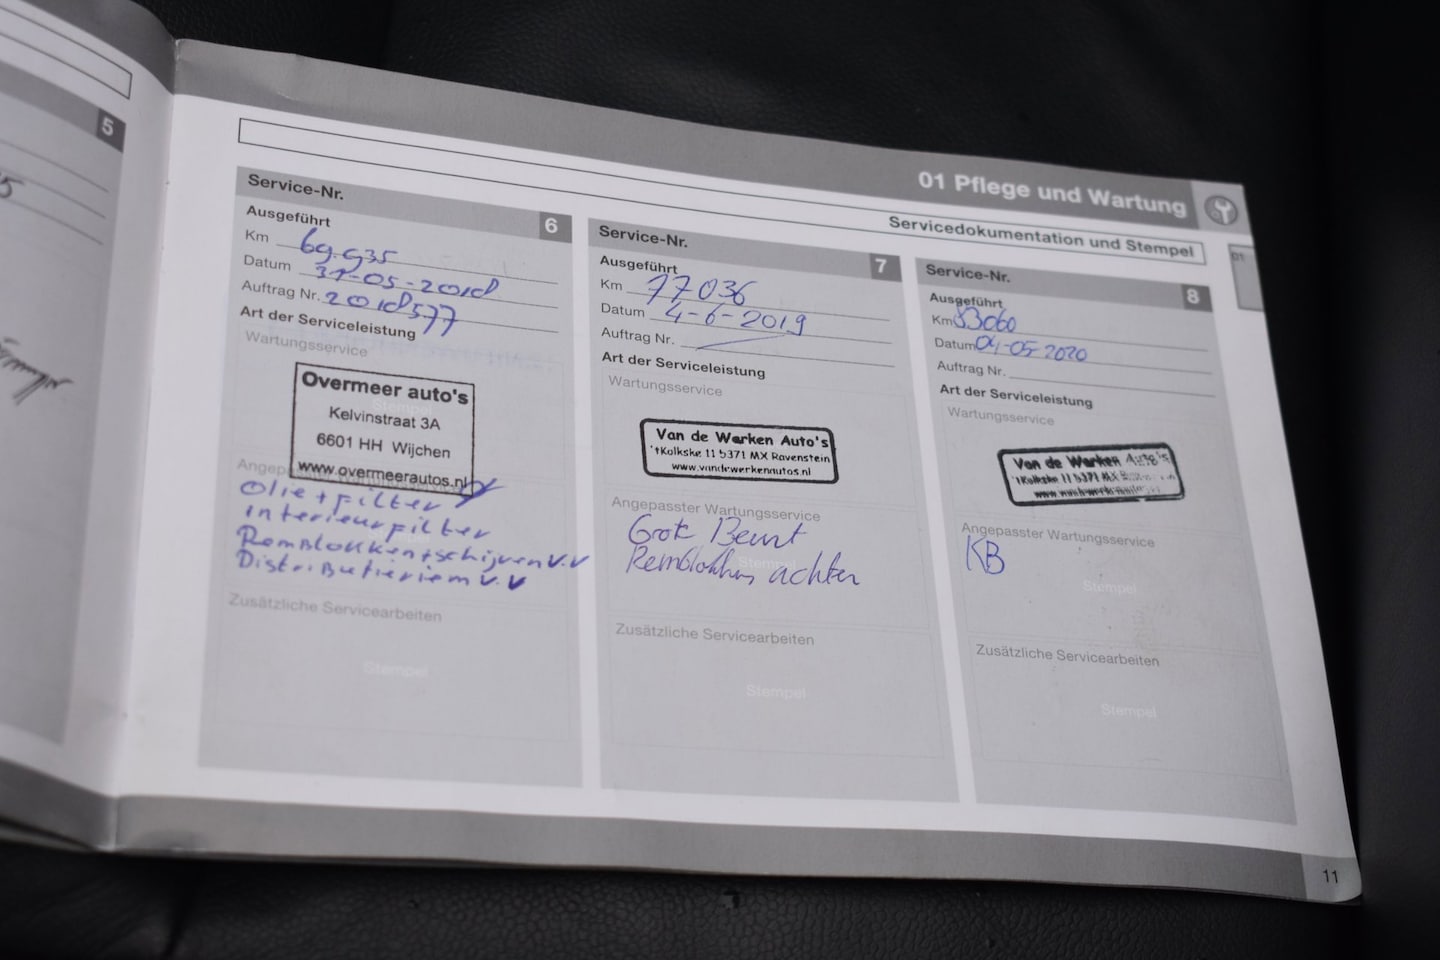 5
01 Pflege und Wartung
Servicedokumentation und Stempel
01
Service-Nr. 6
Ausgeführt
Km 69.935
Datum 31-05-2018
Auftrag Nr. 2018577
Art der Serviceleistung
Wartungsservice
Stempel
Overmeer auto's
Kelvinstraat 3A
6601 HH Wijchen
www.overmeerautos.nl
Angepasster Wartungsservice
Olie + filter
interieurfilter
Remblokken + schijven v.v
Distributieriem v.v
Zusätzliche Servicearbeiten
Stempel
Service-Nr. 7
Ausgeführt
Km 77036
Datum 4-6-2019
Auftrag Nr.
Art der Serviceleistung
Wartungsservice
Van de Werken Auto's
'tKolkske 11 5371 MX Ravenstein
www.vandewerkenautos.nl
Angepasster Wartungsservice
Grote Beurt
Stempel
Remblokken achter
Zusätzliche Servicearbeiten
Stempel
Service-Nr. 8
Ausgeführt
Km 83060
Datum 04-05-2020
Auftrag Nr.
Art der Serviceleistung
Wartungsservice
Van de Werken Auto's
'tKolkske 11 5371 MX
Angepasster Wartungsservice
KB
Stempel
Zusätzliche Servicearbeiten
Stempel
11